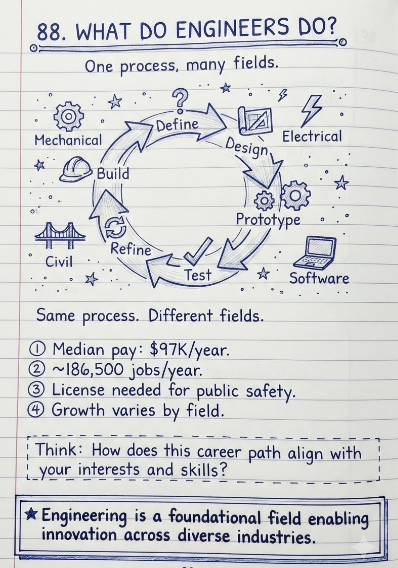 88. WHAT DO ENGINEERS DO?
One process, many fields.
?
Define
Mechanical
Electrical
Design
Build
Prototype
Refine
Civil
Test
Software
Same process. Different fields.
① Median pay: $97K/year.
② ~186,500 jobs/year.
③ License needed for public safety.
④ Growth varies by field.
Think: How does this career path align with
your interests and skills?
★ Engineering is a foundational field enabling
innovation across diverse industries.